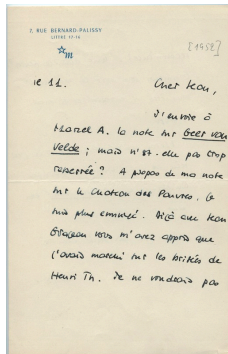 7, RUE BERNARD-PALISSY
LITTRÉ 17-16
m
[1952]
Le 11.
Cher Jean,
J'envoie à
Marcel A. la note sur Geer van
Velde ; mais n'est-elle pas trop
resserrée ? A propos de ma note
sur le Château des Pauvres, je
suis plus ennuyé. Déjà avec Jean
vous m'avez appris que
j'avais marché sur les brisées de
Henri Th. Je ne voudrais pas